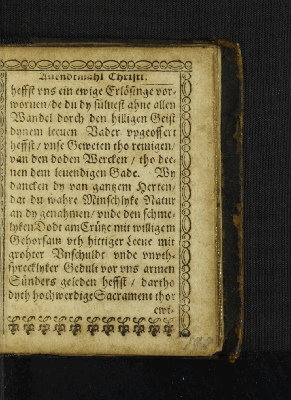 Auendtmahl Christi.
heffst vns ein ewige Erlösinge vor-
woruen / de du dy süluest ahne allen
Wandel dorch den hilligen Geist
dynem leeuen Vader vpgeoffert
heffst / vnse Geweten tho reinigen /
van den doden Wercken / tho dee-
nen dem leuendigen Gade. Wy
dancken dy van gantzem Herten /
dat du wahre Minschlyke Natur
an dy genahmen / vnde den schme-
lyken Dodt am Crütze mit willigem
Gehorsam vth hittiger Leeue mit
grohter Vnschuldt vnde vnvth-
sprecklyker Gedult vor vns armen
Sünders geleden heffst / dartho
dyth hochwerdige Sacrament thor
ewi-